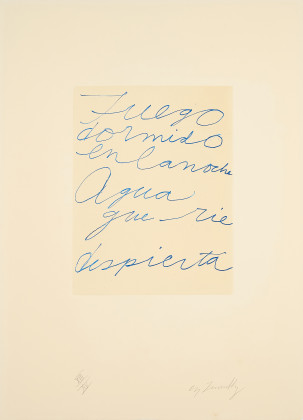 Fuego
dormido
en la noche
Agua
que rie
despierta